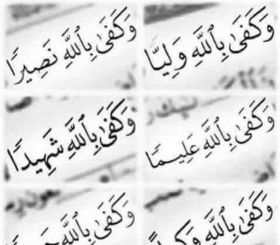 وَكَفَىٰ بِٱللَّهِ وَلِيًّا
وَكَفَىٰ بِٱللَّهِ نَصِيرًا
وَكَفَىٰ بِٱللَّهِ عَلِيمًا
وَكَفَىٰ بِٱللَّهِ شَهِيدًا
وَكَفَىٰ بِٱللَّهِ
وَكَفَىٰ بِٱللَّهِ